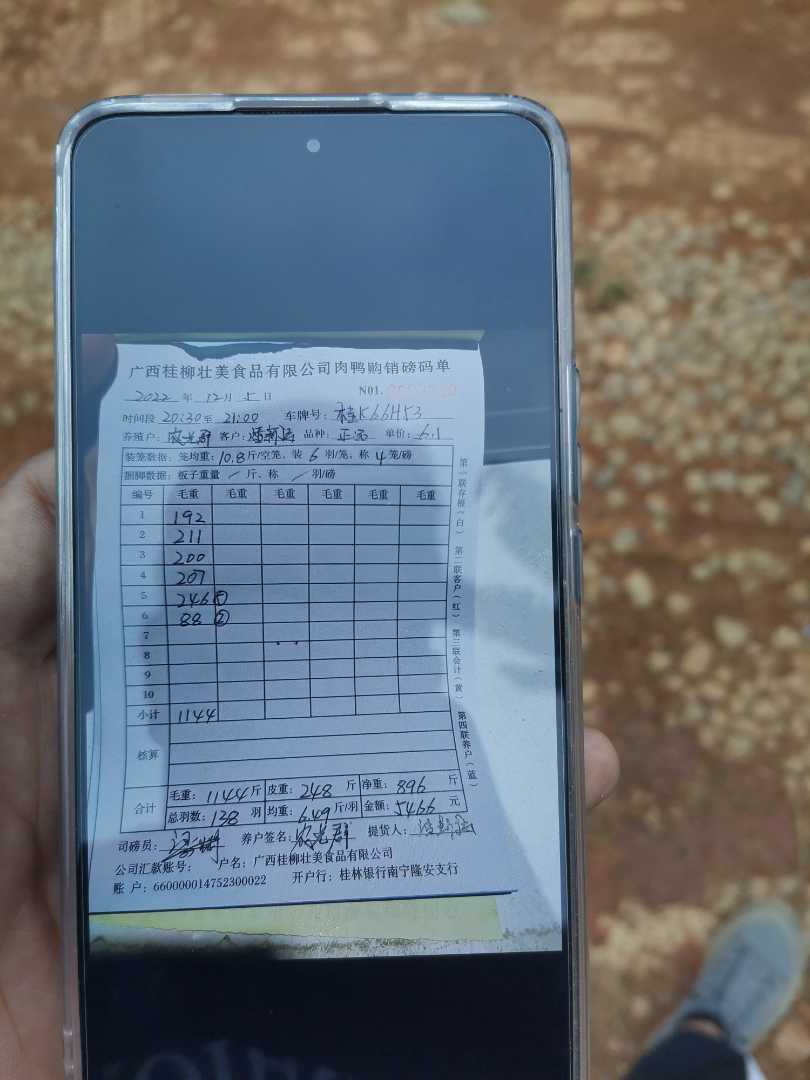 广西桂柳壮美食品有限公司肉鸭购销磅码单
2022 年 12月 5 日 N01.
时间段 20:30 至 21:00 车牌号: 桂K66H53
养殖户: 农光群 客户: 品种: 正品 单价: 6.1
装笼数据: 笼均重: 10.8 斤/空笼、装 6 羽/笼、称 4 笼/磅
捆脚数据: 板子重量 / 斤、称 / 羽/磅
编号 毛重 毛重 毛重 毛重 毛重 毛重
1 192
2 211
3 200
4 207
5 246 ⑤
6 88 ②
7
8
9
10
小计 1144
核算
合计 毛重: 1144 斤 皮重: 248 斤 净重: 896 斤
总羽数: 138 羽 均重: 6.49 斤/羽 金额: 5466 元
司磅员: 养户签名: 农光群 提货人:
公司汇款账号: 户名: 广西桂柳壮美食品有限公司
账 户: 660000014752300022 开户行: 桂林银行南宁隆安支行
第一联存根(白) 第二联客户(红) 第三联会计(黄) 第四联养户(蓝)